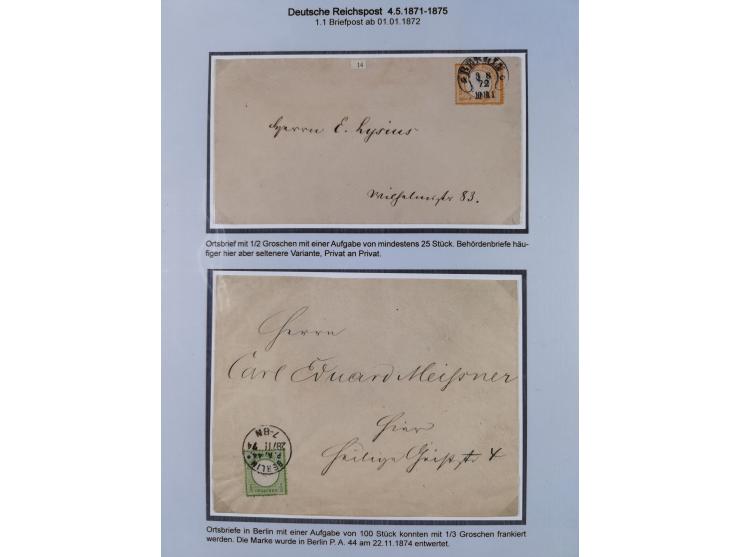 Deutsche Reichspost 4.5.1871-1875
1.1 Briefpost ab 01.01.1872
14
BERLIN
72
Herrn E. Lysius
Wilhelmstr 83.
Ortsbrief mit 1/2 Groschen mit einer Aufgabe von mindestens 25 Stück. Behördenbriefe häu-
figer hier aber seltenere Variante, Privat an Privat.
Herrn
Carl Eduard Meißner
Hier
Heilige Geiststr 4
BERLIN
P. A. 44
7-8N
Ortsbriefe in Berlin mit einer Aufgabe von 100 Stück konnten mit 1/3 Groschen frankiert
werden. Die Marke wurde in Berlin P. A. 44 am 22.11.1874 entwertet.